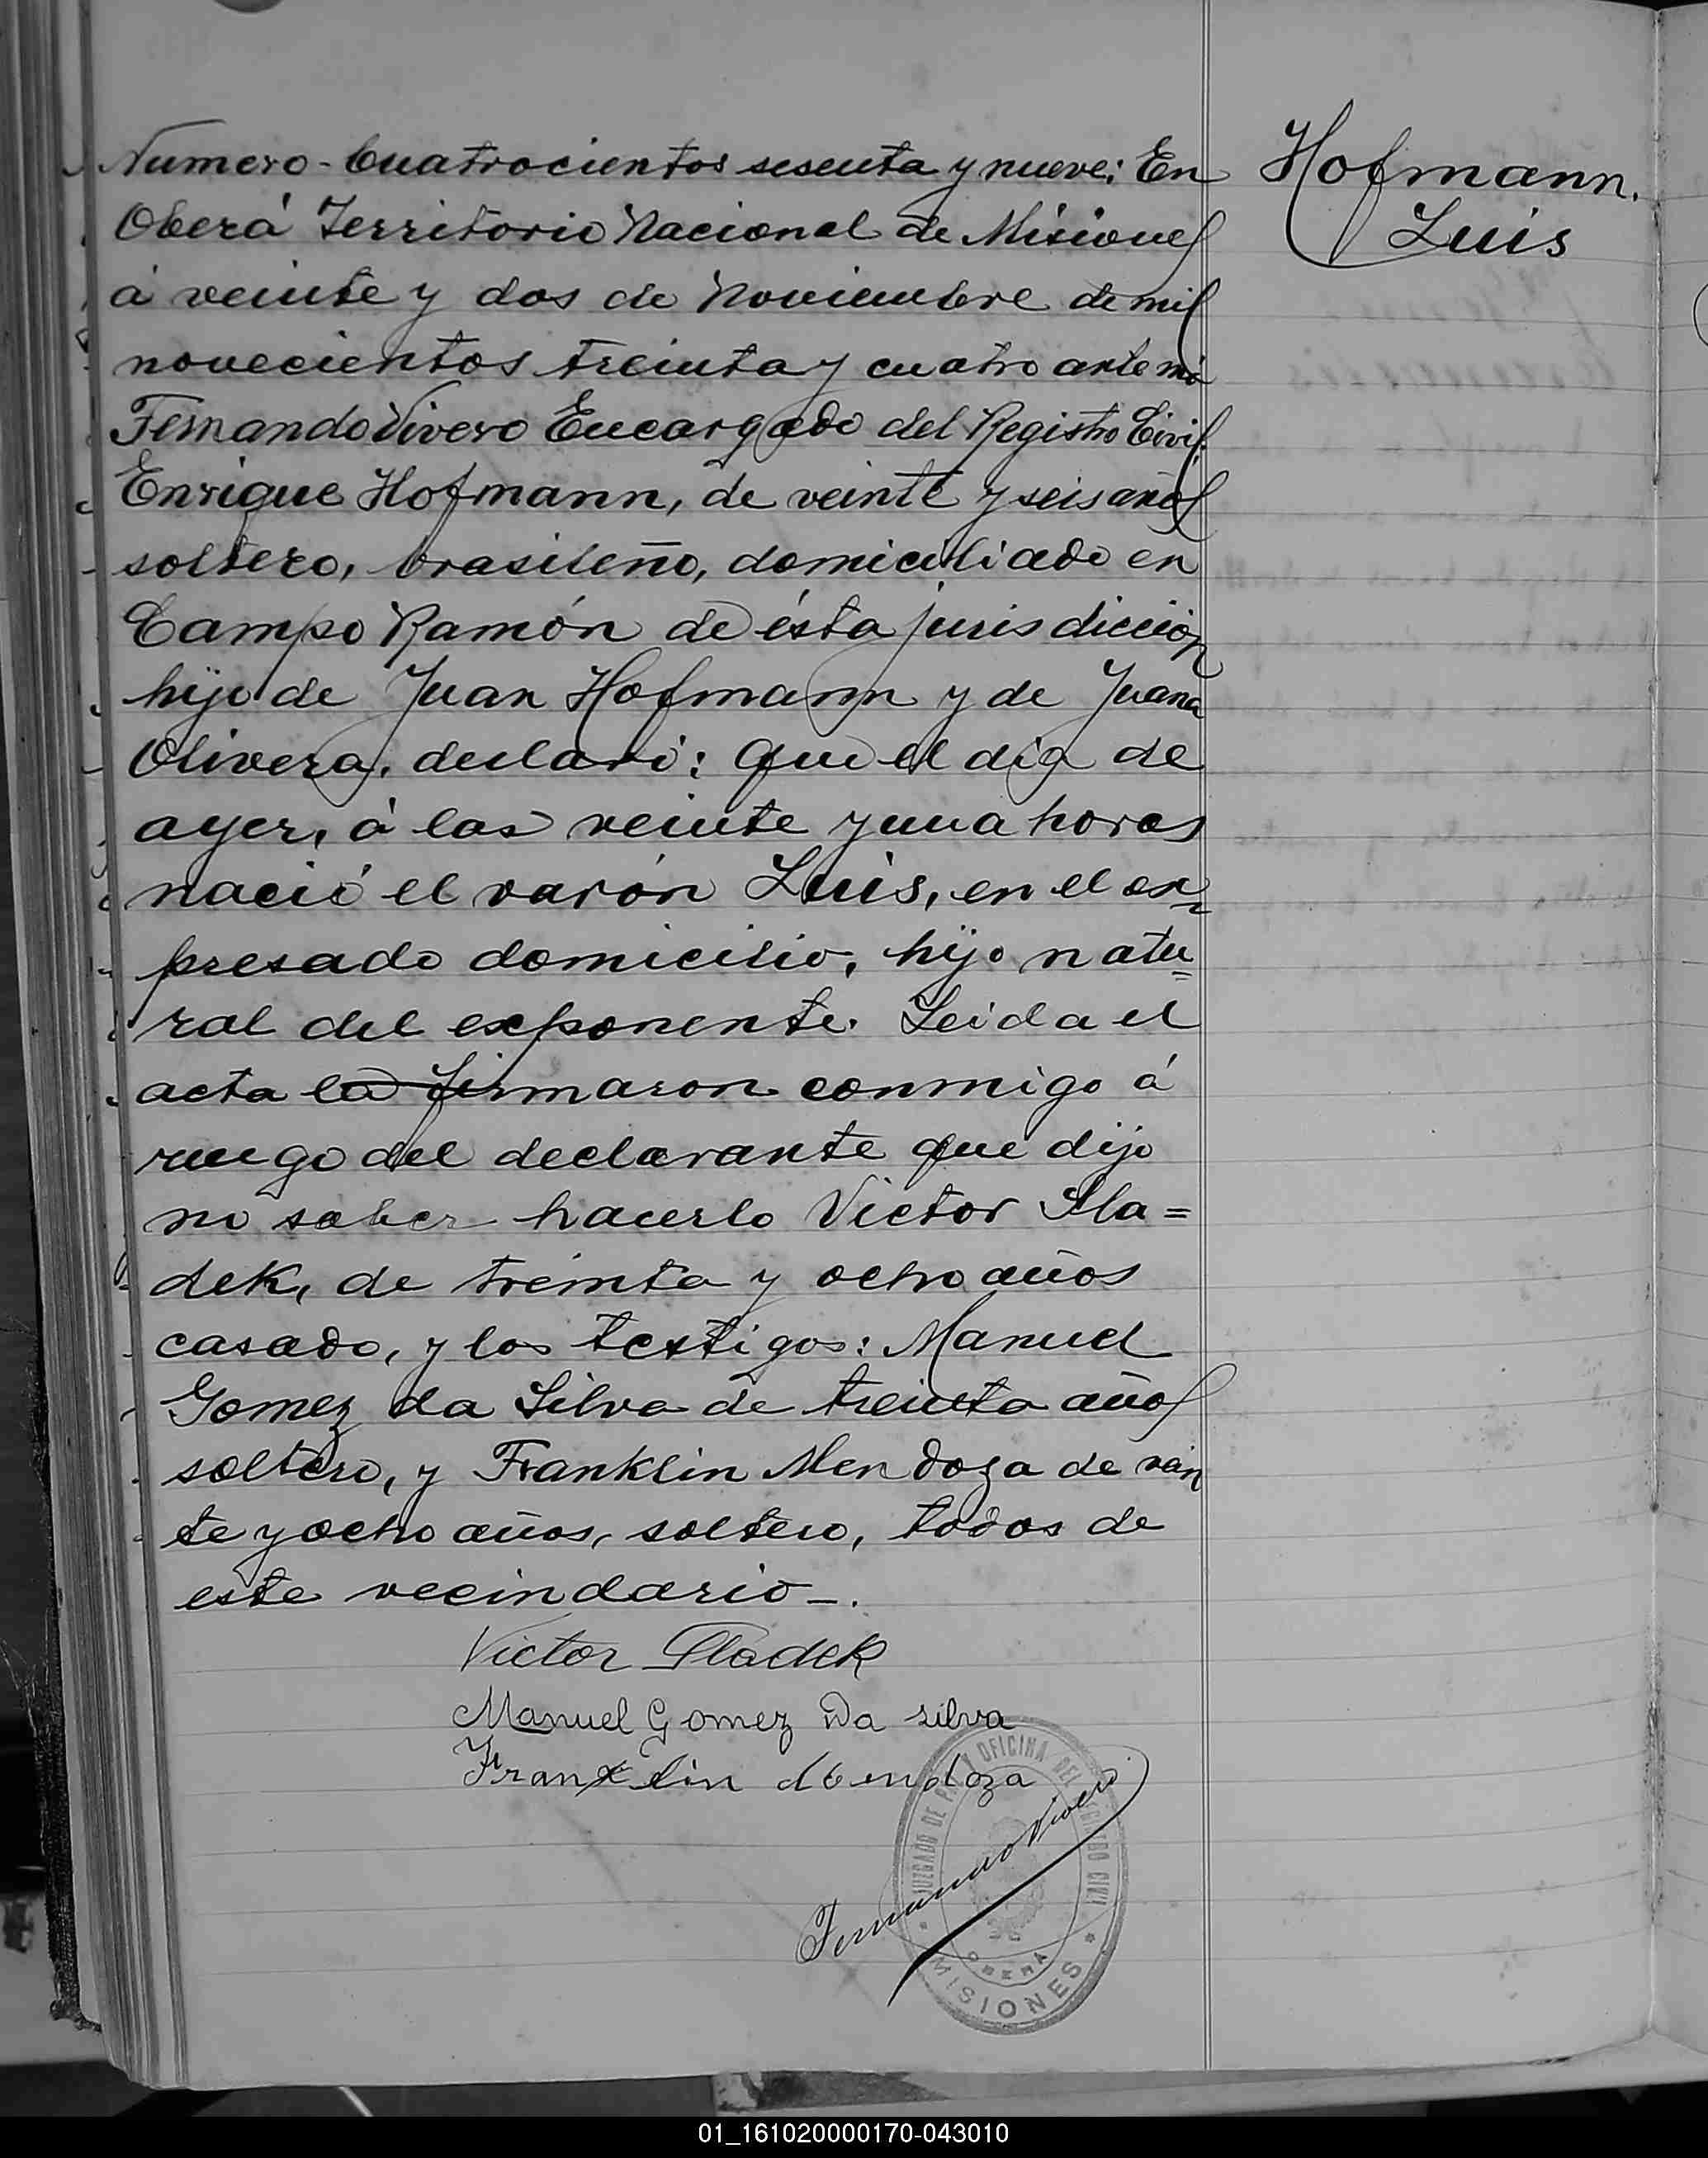 Numero-Cuatrocientos sesenta y nueve: En
Oberá Territorio Nacional de Misiones
á veinte y dos de Noviembre de mil
novecientos treinta y cuatro ante mi
Fernando Vivero Encargado del Registro Civil.
Enrique Hofmann, de veinte y seis años
soltero, brasileño, domiciliado en
Campo Ramón de ésta jurisdicción
hijo de Juan Hofmann y de Juana
Olivera, declaró: Que el dia de
ayer, á las veinte y una horas
nació el varón Luis, en el ex=
presado domicilio, hijo natu=
ral del exponente. Leida el
acta la firmaron conmigo á
ruego del declarante que dijo
no saber hacerlo Victor Sla=
dek, de treinta y ocho años
casado, y los testigos: Manuel
Gomez da Silva de treinta años
soltero, y Franklin Mendoza de vein
te y ocho años, soltero, todos de
este vecindario_.
Hofmann.
Luis
Victor Sladek
Manuel Gomez Da silva
Franklin Mendoza
Fernando Vivero
JUZGADO DE PAZ Y OFICINA DEL REGISTRO CIVIL
OBERA
* MISIONES *
01_161020000170-043010